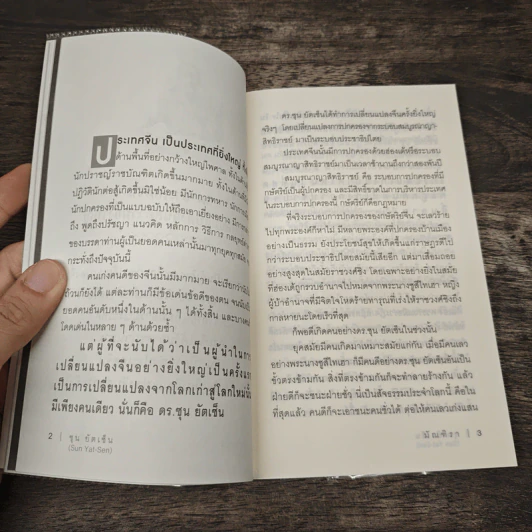 ประเทศจีน เป็นประเทศที่ยิ่งใหญ่
ด้านพื้นที่อย่างกว้างใหญ่ไพศาล ทั้งในด้าน
นักปราชญ์ราชบัณฑิตเกิดขึ้นมากมาย ทั้งในด้าน
ปฏิวัตินักต่อสู้เกิดขึ้นมิใช่น้อย มีนักการทหาร
นักปกครองที่เป็นแบบฉบับให้ถือเอาเยี่ยงอย่าง
อ้าง พูดถึงปรัชญา แนวคิด หลักการ วิธีการ
ของบรรดาท่านผู้เป็นยอดคนเหล่านั้นมาทุกยุคทุกสมัย
กระทั่งถึงปัจจุบันนี้
คนเก่งคนดีของจีนนั้นมีมากมาย จะเรียกว่า
ถ้วนก็ยังได้ แต่ละท่านก็มีข้อเด่นข้อดีของตน
ยอดคนอันดับหนึ่งในด้านนั้น ๆ ได้ทั้งสิ้น และบางคน
โดดเด่นในหลาย ๆ ด้านด้วยซ้ำ
แต่ผู้ที่จะนับได้ว่าเป็นผู้นำในการ
เปลี่ยนแปลงจีนอย่างยิ่งใหญ่เป็นครั้งแรก
เป็นการเปลี่ยนแปลงจากโลกเก่าสู่โลกใหม่นั้น
มีเพียงคนเดียว นั่นก็คือ ดร.ซุน ยัตเซ็น
2 | ซุน ยัตเซ็น
(Sun Yat-Sen)
ดร.ซุน ยัตเซ็นได้ทำการเปลี่ยนแปลงจีนครั้งยิ่งใหญ่
จริงๆ โดยเปลี่ยนแปลงการปกครองจากระบอบสมบูรณาญา-
สิทธิราชย์ มาเป็นระบอบประชาธิปไตย
ประเทศจีนนั้นมีการปกครองด้วยฮ่องเต้หรือระบอบ
สมบูรณาญาสิทธิราชย์มาเป็นเวลาช้านานถึงกว่าสองพันปี
สมบูรณาญาสิทธิราชย์ คือ ระบอบการปกครองที่มี
กษัตริย์เป็นผู้ปกครอง และมีสิทธิ์ขาดในการบริหารประเทศ
ในระบอบการปกครองนี้ กษัตริย์ก็คือกฎหมาย
ที่จริงระบอบการปกครองของกษัตริย์จีน จะเลวร้าย
ไปทุกพระองค์ก็หาไม่ มีหลายพระองค์ที่ปกครองบ้านเมือง
อย่างเป็นธรรม ยังประโยชน์สุขให้เกิดขึ้นแก่ราษฎรดีไป
กว่าระบอบประชาธิปไตยสมัยนี้เสียอีก แต่มาเสื่อมถอย
อย่างสูงสุดในสมัยราชวงศ์ชิง โดยเฉพาะอย่างยิ่งในสมัย
ที่ฮ่องเต้ถูกรวบอำนาจไปหมดจากพระนางซูสีไทเฮา หญิง
ผู้บ้าอำนาจที่มีจิตใจโหดร้ายทารุณที่เร่งให้ราชวงศ์ชิงถึง
กาลหายนะโดยเร็วที่สุด
ก็พอดีเกิดคนอย่างดร.ซุน ยัตเซ็นในช่วงนั้น
ยุคสมัยมีคนเกิดมาเหมาะสมัยแก่กัน เมื่อมีคนเลว
อย่างพระนางซูสีไทเฮา ก็มีคนดีอย่างดร.ซุน ยัตเซ็นอันเป็น
ขั้วตรงข้ามกัน สิ่งที่ตรงข้ามกันก็จะทำลายร้างกัน แล้ว
ฝ่ายดีก็จะชนะฝ่ายชั่ว นี่เป็นสัจธรรมประจำโลกนี้ คือใน
ที่สุดแล้ว คนดีก็จะเอาชนะคนชั่วได้ ต่อให้คนเลวเก่งแสน
มีณทิรา | 3